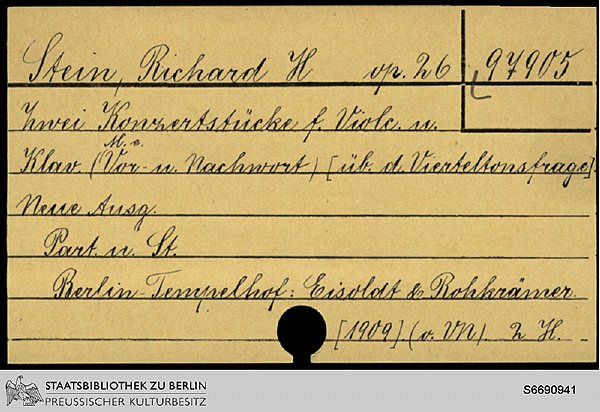 Stein, Richard H op. 26 97905
Zwei Konzertstücke f. Violc. u.
M. e.
Klav. (Vor- u. Nachwort) [üb. d. Vierteltonsfrage].
Neue Ausg.
Part. u. St.
Berlin-Tempelhof: Eisoldt & Rohkrämer
[1909] (o. VN) 2 H.
STAATSBIBLIOTHEK ZU BERLIN
PREUSSISCHER KULTURBESITZ
S6690941